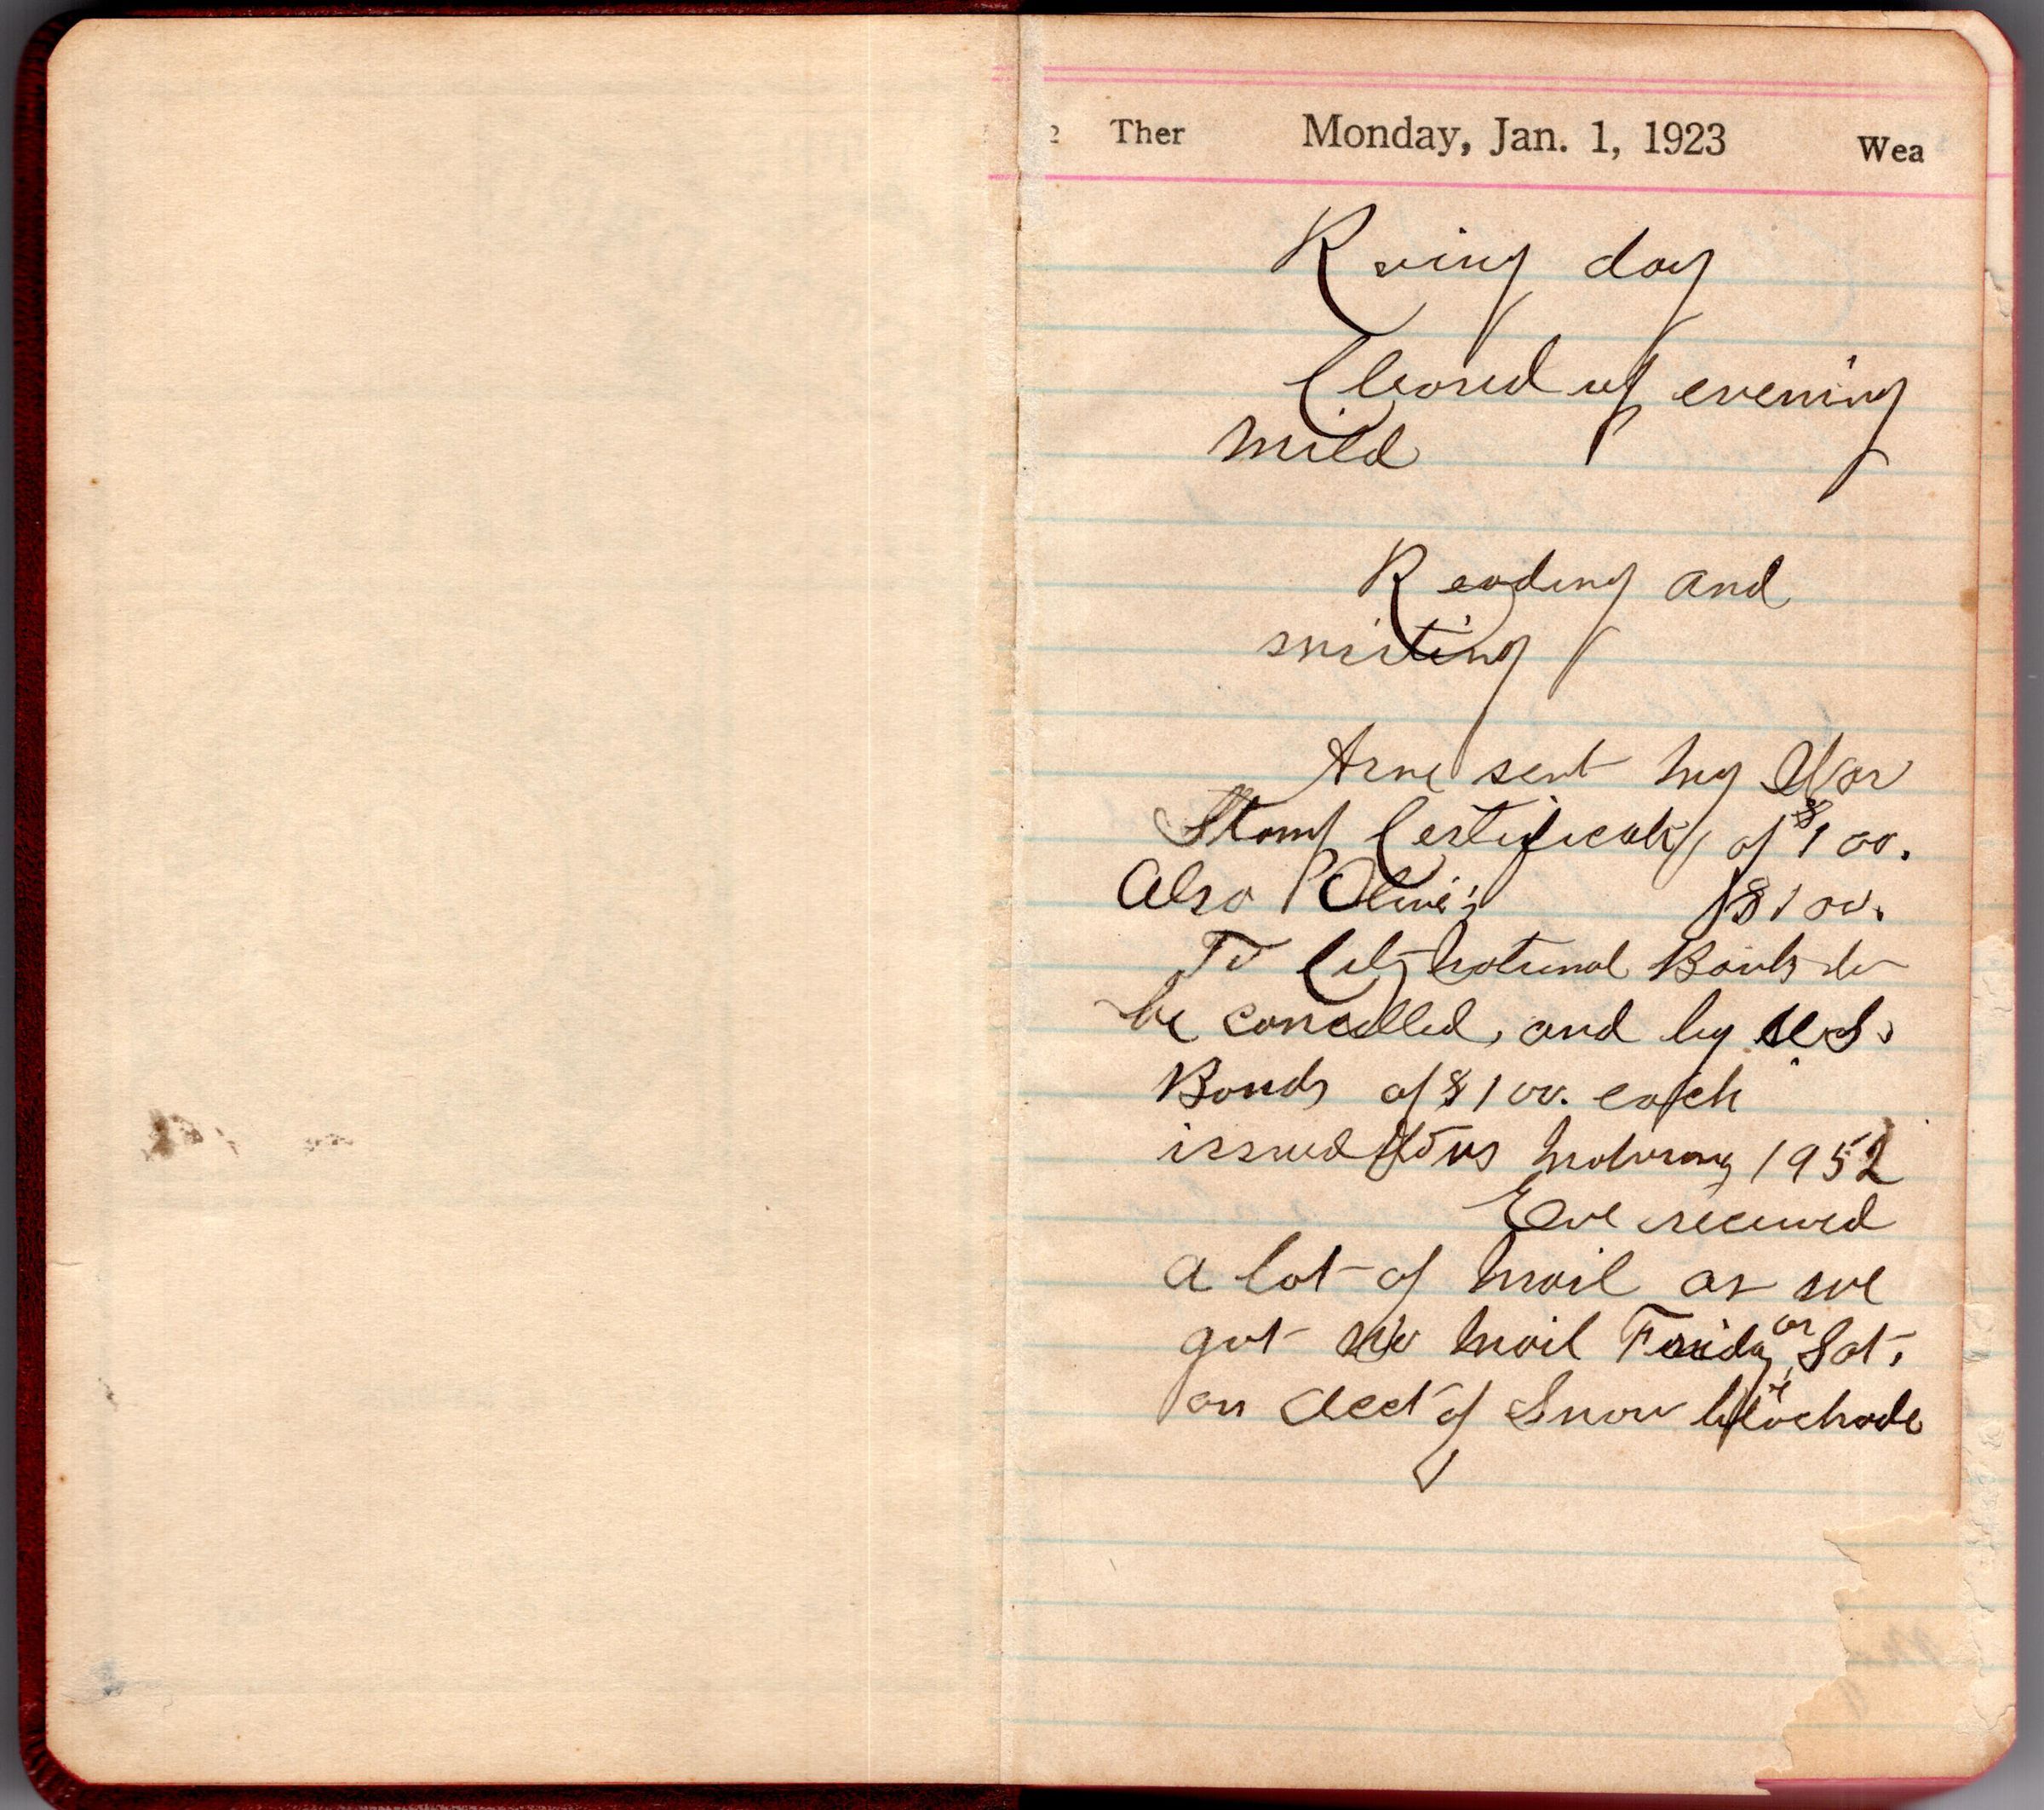 Ther Monday, Jan. 1, 1923 Wea
day
Cleared up evening
Mild
Reading and
writing
sent my War
Stamp Certificate of $100.
Also Olive's $100.
To City National Bank to
be cancelled, and by U.S.
Bonds of $100. each
issued to us 1952
Eve received
a lot of mail as we
got no mail Friday or Sat.
on acct of Snow